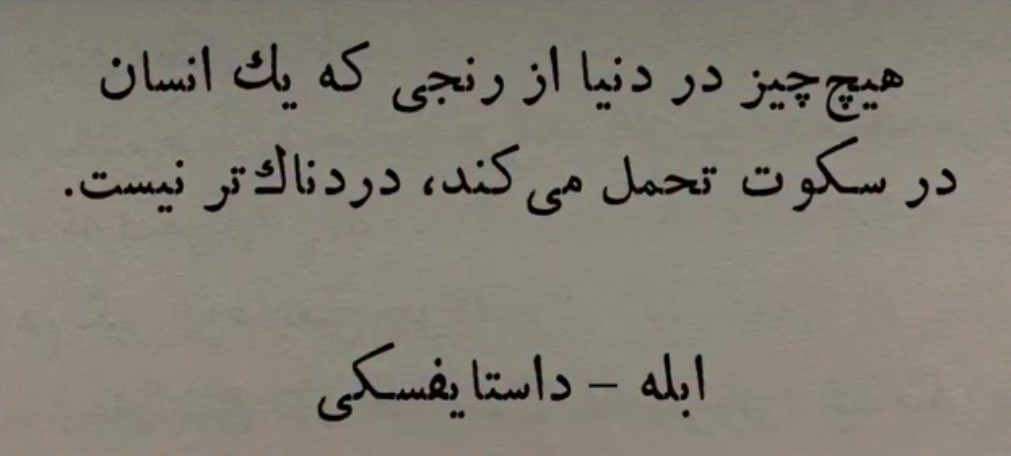 هیچ‌چیز در دنیا از رنجی که یك انسان
در سکوت تحمل می‌کند، دردناك‌تر نیست.
ابله – داستایفسکی